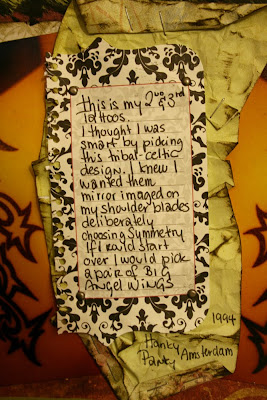 this is my 2ND & 3rd
tattoos.
I thought I was
smart by picking
this tribal-celtic
design. I knew I
wanted them
mirror imaged on
my shoulder blades
deliberately
choosing Symmetry
If I could start
over I would pick
a pair of BIG
Angel WINGS
1994
Hanky
Panky Amsterdam